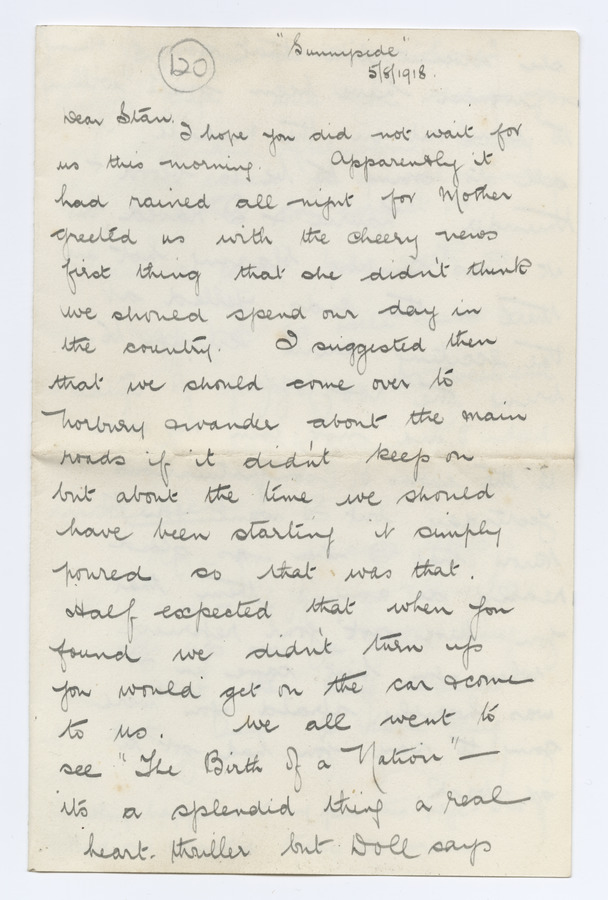 120
"Sunnyside"
5/8/1918.
Dear Stan.
I hope you did not wait for
us this morning. Apparently it
had rained all night for Mother
greeted us with the cheery news
first thing that she didn't think
we should spend our day in
the country. I suggested then
that we should come over to
Norbury & wander about the main
roads if it didn't keep on
but about the time we should
have been starting it simply
poured so that was that.
Half expected that when you
found we didn't turn up
you would get on the car & come
to us. We all went to
see "The Birth of a Nation" —
it's a splendid thing a real
heart-thriller but Doll says